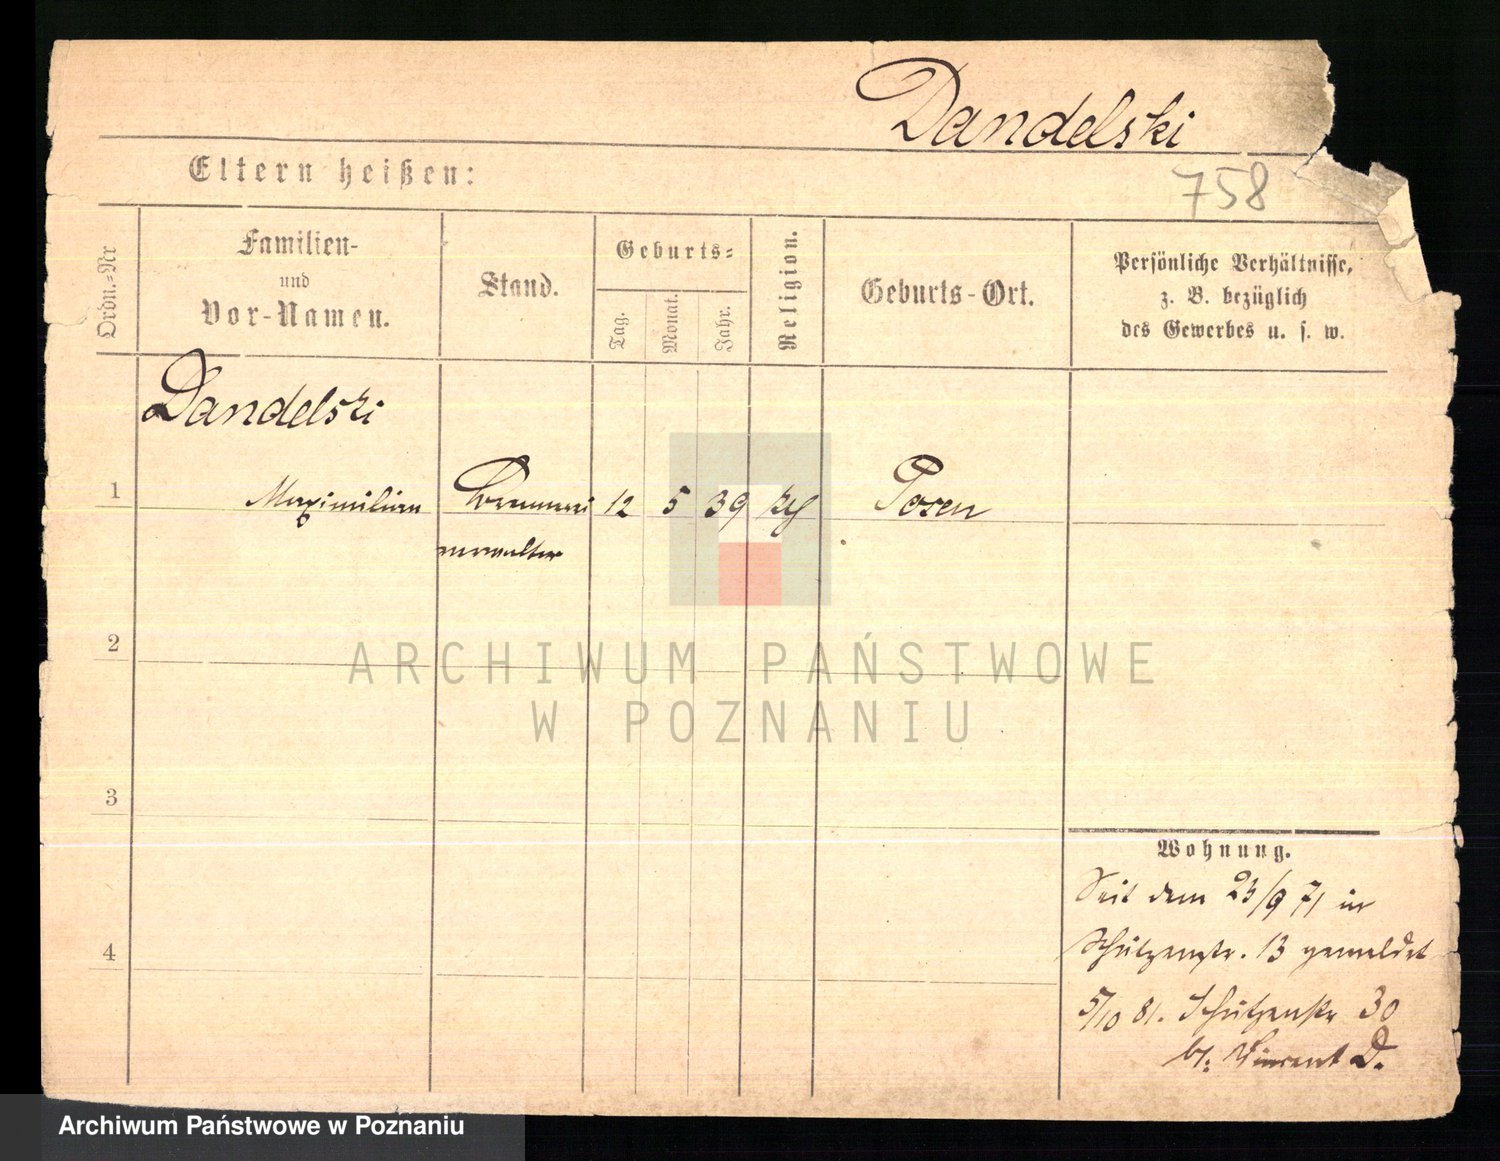 Dandelski
Eltern heißen:
758
Ordn.=Nr
Familien-
und
Vor-Namen.
Stand.
Geburts=
Tag.
Monat.
Jahr.
Religion.
Geburts-Ort.
Persönliche Verhältnisse,
z. B. bezüglich
des Gewerbes u. s. w.
Dandelski
1 Maximilian 12 5 39 Posen
verwalter
2
ARCHIWUM PAŃSTWOWE
W POZNANIU
3
Wohnung.
Seit dem 23/9 71 in
4
Schützenstr. 13 gemeldet
5/10 81. Schützenstr 30
b/. Vincent D.
Archiwum Państwowe w Poznaniu